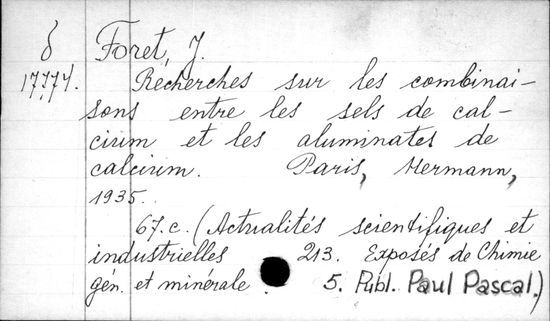 δ Foret, J.
17774. Recherches sur les combinai-
sons entre les sels de cal-
cium et les aluminates de
calcium. Paris, Hermann,
1935.
67.c. (Actualités scientifiques et
industrielles 213. Exposés de Chimie
gén. et minérale. 5. Publ. Paul Pascal.)